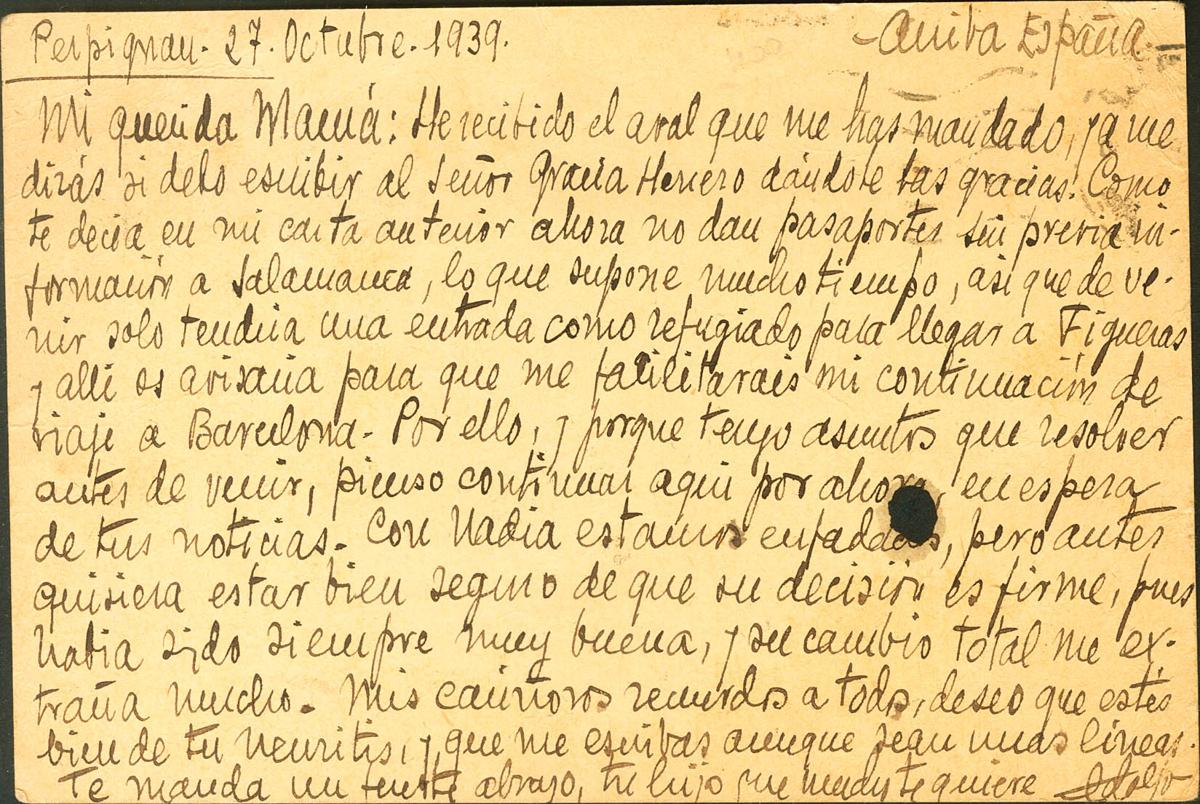 Perpignan. 27. Octubre. 1939. - Arriba España. -
Mi querida Mamá: He recibido el aval que me has mandado, ya me
dirás si debo escribir al Señor Gracia Herrero dándole las gracias. Como
te decia en mi carta anterior ahora no dan pasaportes sin previa in-
formación a Salamanca, lo que supone mucho tiempo, asi que de ve-
nir solo tendria una entrada como refugiado para llegar a Figueras
y alli os avisaria para que me facilitarais mi continuación de
viaje a Barcelona. Por ello, y porque tengo asuntos que resolver
antes de venir, pienso continuar aqui por ahora, en espera
de tus noticias. Con Nadia estamos enfadados, pero antes
quisiera estar bien seguro de que su decisión es firme, pues
habia sido siempre muy buena, y su cambio total me ex-
traña mucho. Mis cariñosos recuerdos a todos, deseo que estés
bien de tu neuritis, y que me escribas aunque sean unas líneas.
Te manda un fuerte abrazo, tu hijo que mucho te quiere Adolfo